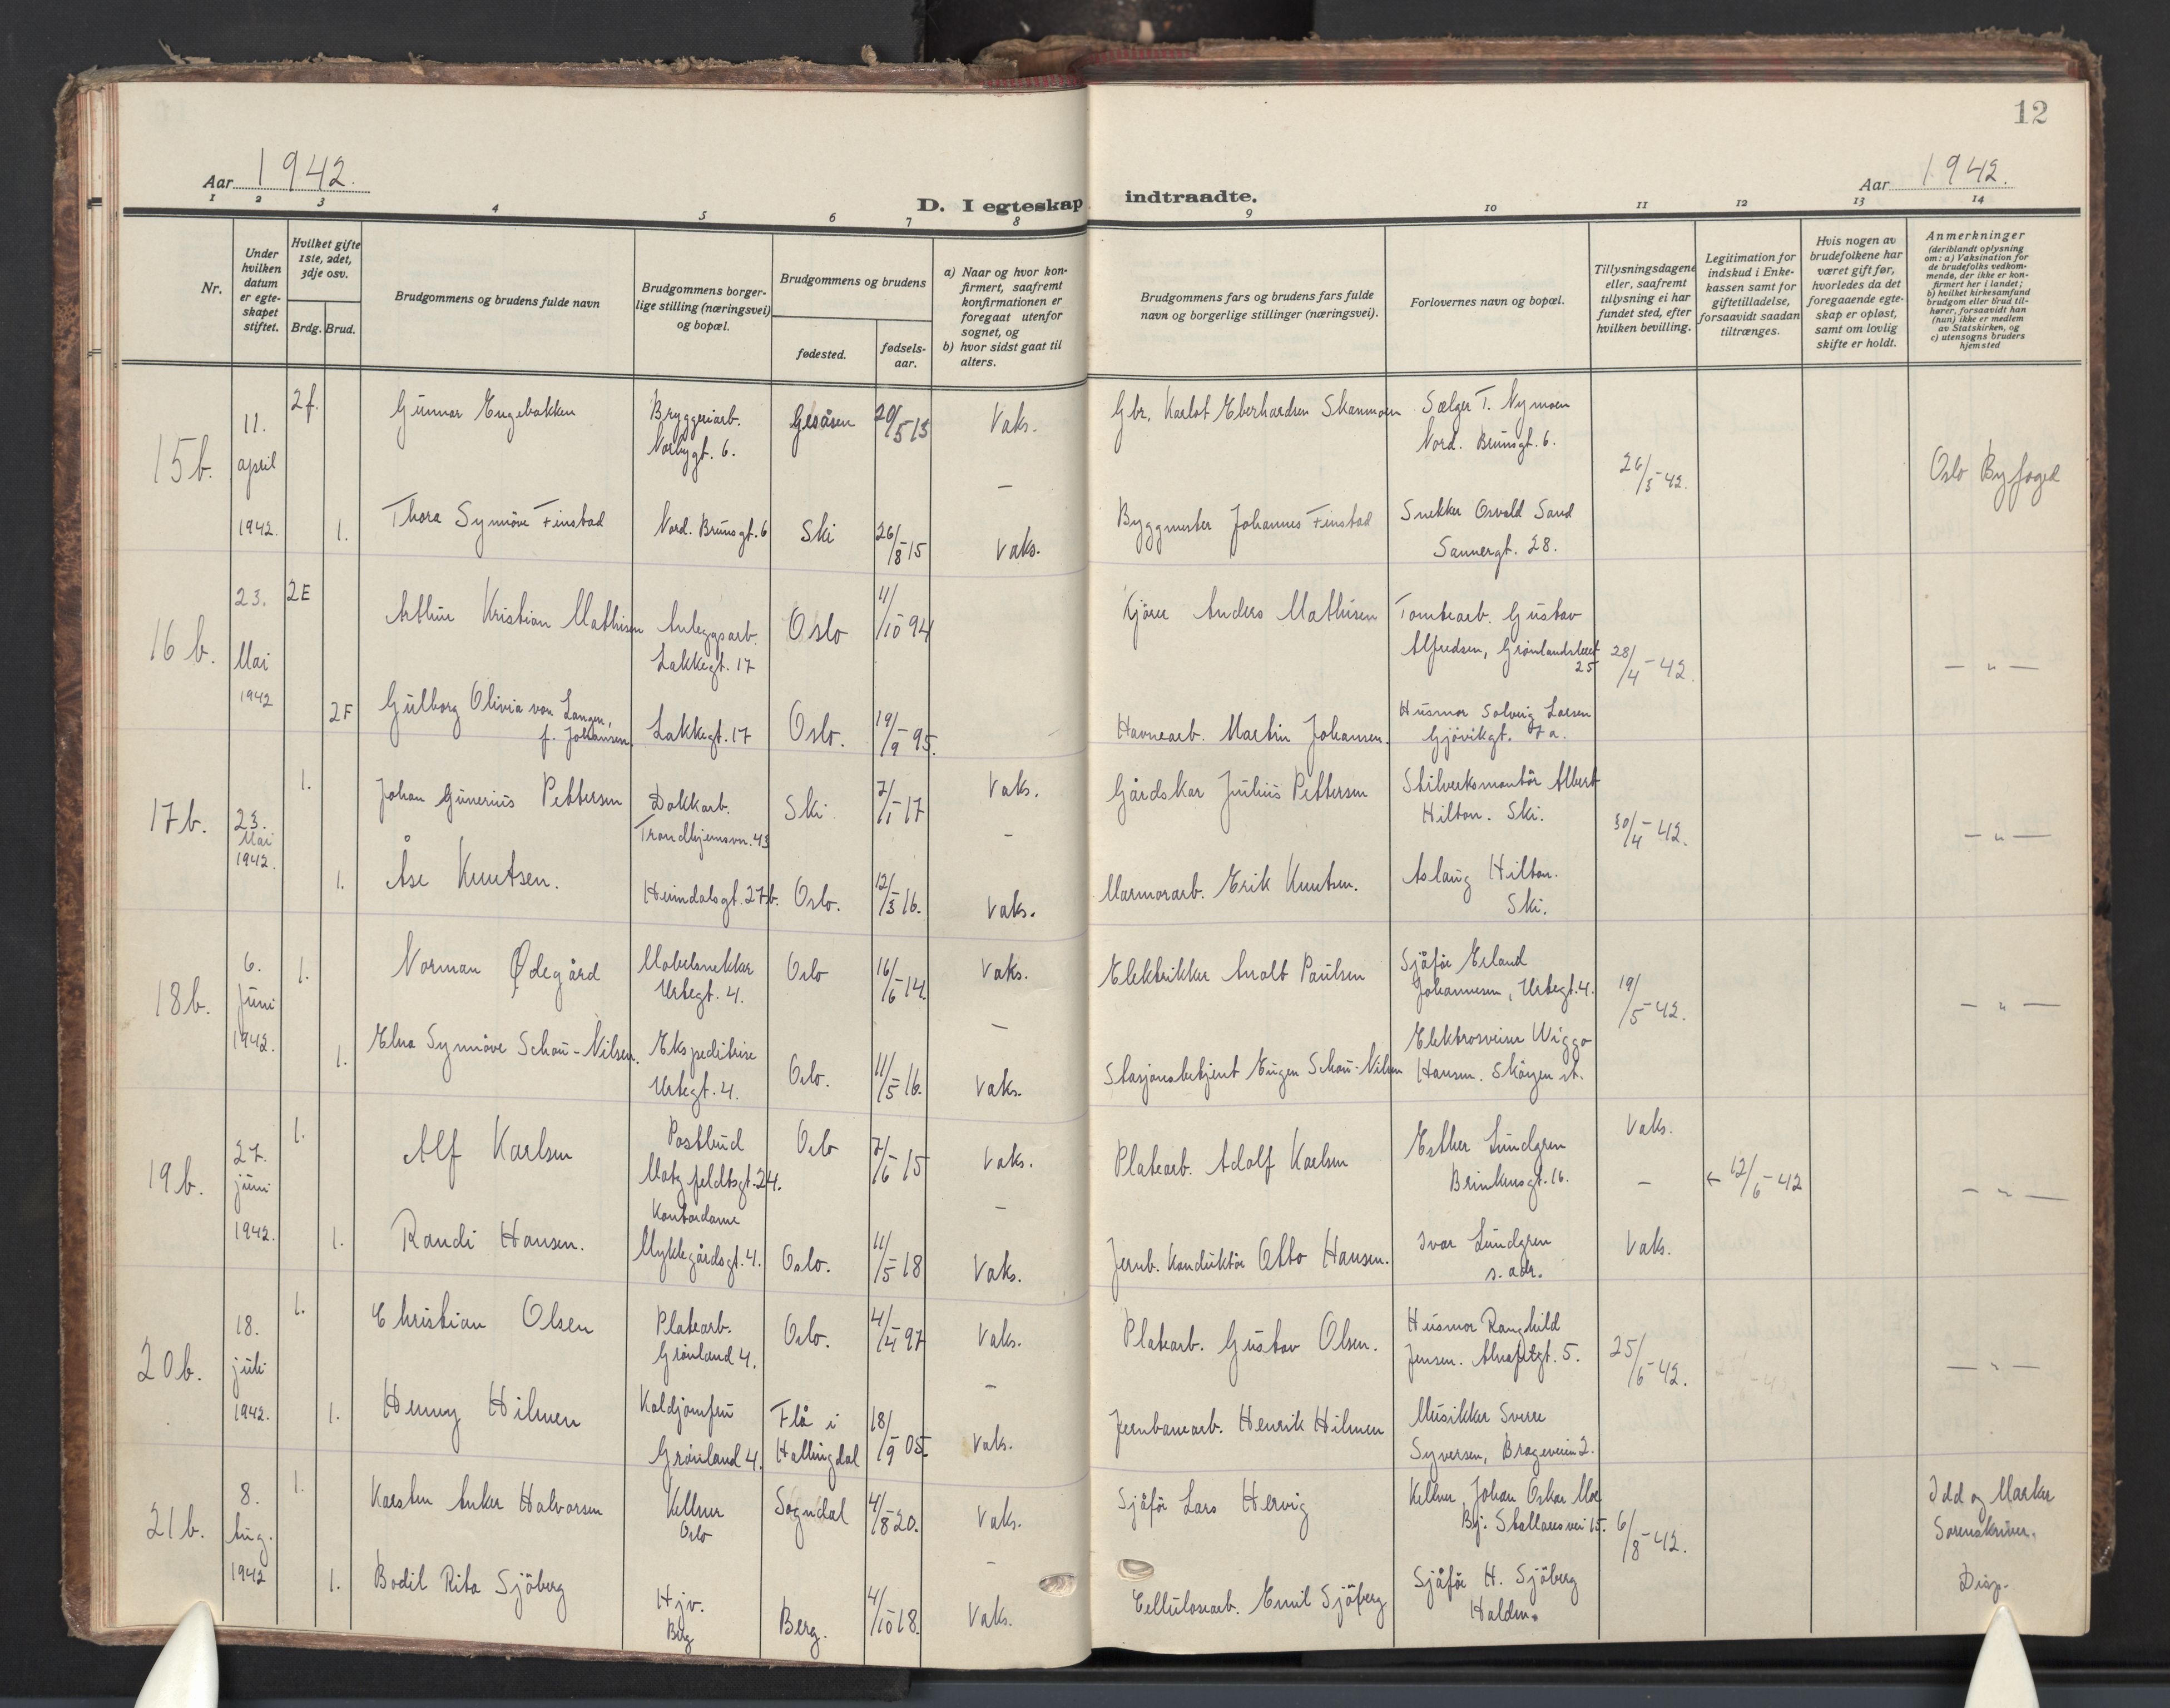 12
Aar 1942.
D. I egteskap indtraadte.
Aar 1942.
1 2 3 4 5 6 7 8 9 10 11 12 13 14
Nr.
Under hvilken datum er egteskapet stiftet.
Hvilket gifte 1ste, 2det, 3dje osv.
Brdg. Brud.
Brudgommens og brudens fulde navn
Brudgommens borgerlige stilling (næringsvei) og bopæl.
Brudgommens og brudens
fødested.
fødselsaar.
a) Naar og hvor konfirmert, saafremt konfirmationen er foregaat utenfor sognet, og
b) hvor sidst gaat til alters.
Brudgommens fars og brudens fars fulde navn og borgerlige stillinger (næringsvei).
Forlovernes navn og bopæl.
Tillysningsdagene eller, saafremt tillysning ei har fundet sted, efter hvilken bevilling.
Legitimation for indskud i Enkekassen samt for giftetilladelse, forsaavidt saadan tiltrænges.
Hvis nogen av brudefolkene har været gift før, hvorledes da det foregaaende egteskap er opløst, samt om lovlig skifte er holdt.
Anmerkninger
(deriblandt oplysning om: a) Vaksination for de brudefolks vedkommende, der ikke er konfirmert her i landet; b) hvilket kirkesamfund brudgom eller brud tilhører, forsaavidt han (hun) ikke er medlem av Statskirken, og c) utensogns bruders hjemsted
15b. 11. april 1942. 2f. Gunnar Engebakken Bryggeriarb. Norbygt. 6. Gråsen 20/5-13 Vaks. Gbr. Karlot Eberhardsen Skanmoen Sælger T. Nymoen Nord. Brunsgt. 6. 26/3-42. Oslo Byfoged
1. Thora Synnöve Finstad Nord. Brunsgt. 6 Ski 26/8-15 Vaks. Byggmester Johannes Finstad Snekker Osvald Sand Sannergt. 28.
16b. 23. Mai 1942 2E Arthur Kristian Mathisen Anleggsarb. Lakkegt. 17 Oslo 4/10-94 Kjörer Anders Mathisen Tomtearb. Gustav Alfredsen, Grönlandsleret 25 28/4-42. — " —
2F Gulborg Olivia von Langen, f. Johansen. Lakkegt. 17 Oslo. 19/9-95. Havnearb. Martin Johansen. Husmor Solveig Larsen Gjövikgt. 7a.
17b. 23. Mai 1942. 1. Johan Gunerius Pettersen Dokkarb. Trondhjemsvn. 43 Ski 7/1-17 Vaks. Gårdskar Julius Pettersen Stilverksmontör Albert Hilton. Ski. 30/4-42. — " —
1. Åse Knutsen. Heimdalsgt. 27b. Oslo. 12/3-16. Vaks. Marmorarb. Erik Knutsen. Aslaug Hilton. Ski.
18b. 6. Juni 1942. 1. Norman Ødegård Møbelsnekker Urtegt. 4. Oslo 16/6-14. Vaks. Elektrikker Analt Paulsen Sjåför Erland Johannesen, Urtegt. 4. 19/5-42. — " —
1. Elna Synnöve Schou-Nilsen. Ekspeditrise Urtegt. 4. Oslo. 11/5-16. Vaks. Stasjonsbetjent Eugen Schou-Nilsen Elektrosveiser Wiggo Hansen. Sköyen st.
19b. 27. juni 1942. 1. Alf Karlsen Postbud Motzfeldtsgt. 24. Oslo 7/6-15 Vaks. Platearb. Adolf Karlsen Esther Lundgren Brinkensgt. 16. Vaks. — ← 12/6-42 — " —
1. Randi Hansen. Kontordame Myklegårdsgt. 4. Oslo. 11/5-18 Vaks. Jernb. konduktör Otto Hansen. Ivar Lundgren s. adr. Vaks.
20b. 18. juli 1942. 1. Christian Olsen Platearb. Grönland 4. Oslo. 4/4-97 Vaks. Platearb. Gustav Olsen. Husmor Ranghild Jensen. 5. 25/6-42. — " —
1. Henny Hilmen Koldjomfru Grönland 4. Flå i Hallingdal 18/9-05. Vaks. Jernbanearb. Henrik Hilmen Musikker Sverre Syversen, Brageveien 2.
21b. 8. Aug. 1942 1. Karsten Anker Halvorsen Kellner Oslo Sogndal 4/8-20. Vaks. Sjåför Lars Hervig Kellner Johan Oskar Moe Bj: Stallaresvei 15. 6/8-42. Idd og Marker Sorenskriver.
1. Bodil Rita Sjöberg Hjv. Berg Berg. 4/10-18. Vaks. Cellulosearb. Emil Sjöberg Sjåför H. Sjöberg Halden. Disp.